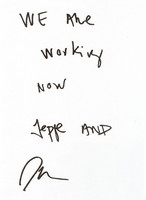 WE ARe
working
NOW
Jeppe AND